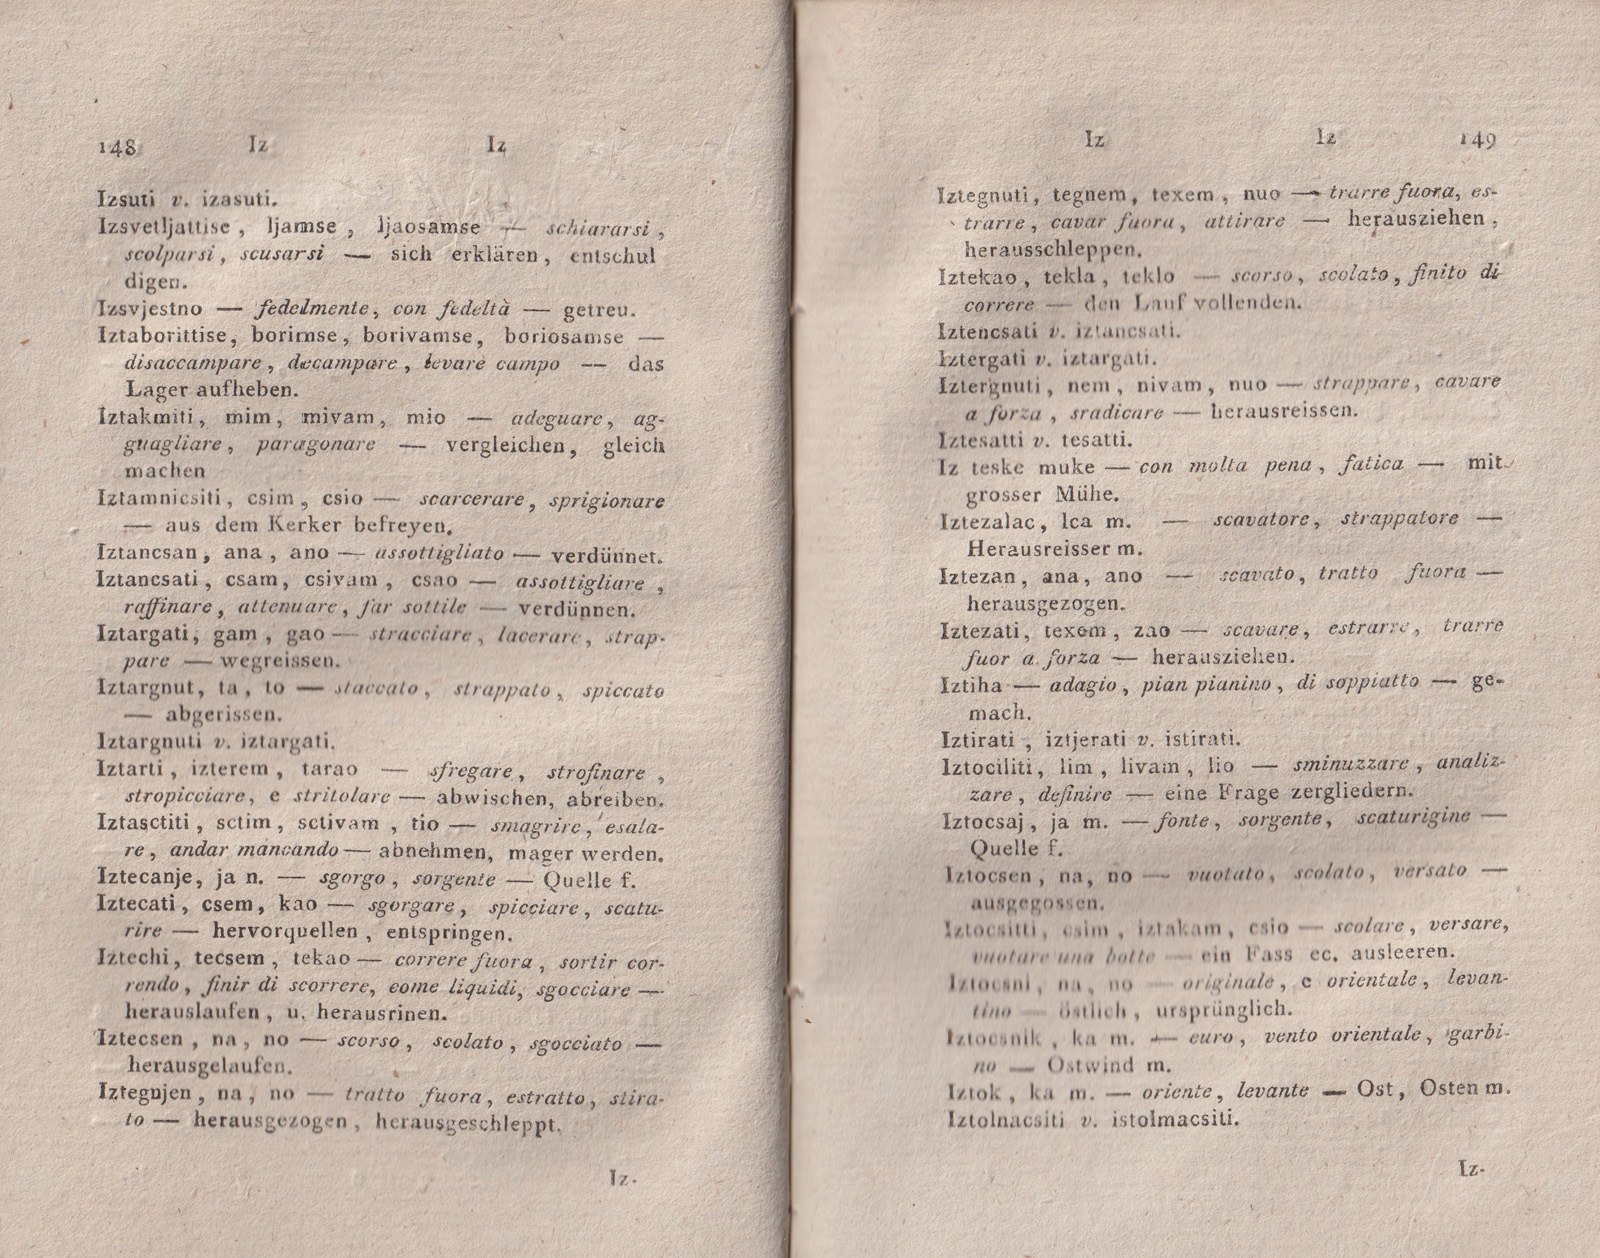 148 Iz Iz
Izsuti v. izasuti.
Izsvetljattise , ljamse , ljaosamse — schiararsi ,
scolparsi , scusarsi — sich erklären , entschul
digen.
Izsvjestno — fedelmente, con fedeltà — getreu.
Iztaborittise, borimse, borivamse, boriosamse —
disaccampare , decampare , levare campo — das
Lager aufheben.
Iztakmiti, mim, mivam, mio — adeguare, ag-
guagliare, paragonare — vergleichen, gleich
machen
Iztamnicsiti, csim, csio — scarcerare, sprigionare
— aus dem Kerker befreyen.
Iztancsan, ana, ano — assottigliato — verdünnet.
Iztancsati, csam, csivam, csao — assottigliare ,
raffinare, attenuare, far sottile — verdünnen.
Iztargati, gam, gao — stracciare, lacerare, strap-
pare — wegreissen.
Iztargnut, ta, to — staccato, strappato, spiccato
— abgerissen.
Iztargnuti v. iztargati.
Iztarti, izterem, tarao — sfregare, strofinare ,
stropicciare, e stritolare — abwischen, abreiben.
Iztasctiti, sctim, sctivam , tio — smagrire, esala-
re, andar mancando — abnehmen, mager werden.
Iztecanje, ja n. — sgorgo, sorgente — Quelle f.
Iztecati, csem, kao — sgorgare, spicciare, scatu-
rire — hervorquellen , entspringen.
Iztechi, tecsem, tekao — correre fuora, sortir cor-
rendo, finir di scorrere, come liquidi, sgocciare —
herauslaufen, u. herausrinen.
Iztecsen, na, no — scorso, scolato, sgocciato —
herausgelaufen.
Iztegnjen, na, no — tratto fuora, estratto, stira-
to — herausgezogen, herausgeschleppt.
Iz-
Iz Iz 149
Iztegnuti, tegnem, texem, nuo — trarre fuora, es-
trarre, cavar fuora, attirare — herausziehen,
herausschleppen.
Iztekao, tekla, teklo — scorso, scolato, finito di
correre — den Lauf vollenden.
Iztencsati v. iztancsati.
Iztergati v. iztargati.
Iztergnuti, nem, nivam, nuo — strappare, cavare
a forza, sradicare — herausreissen.
Iztesatti v. tesatti.
Iz teske muke — con molta pena, fatica — mit
grosser Mühe.
Iztezalac, lca m. — scavatore, strappatore —
Herausreisser m.
Iztezan, ana, ano — scavato, tratto fuora —
herausgezogen.
Iztezati, texem, zao — scavare, estrarre, trarre
fuor a forza — herausziehen.
Iztiha — adagio, pian pianino, di soppiatto — ge-
mach.
Iztirati , iztjerati v. istirati.
Iztociliti, lim, livam, lio — sminuzzare, analiz-
zare, definire — eine Frage zergliedern.
Iztocsaj, ja m. — fonte, sorgente, scaturigine —
Quelle f.
Iztocsen, na, no — vuotato, scolato, versato —
ausgegossen.
Iztocsitti, csim, iztakam, csio — scolare, versare,
vuotare una botte — ein Fass ec. ausleeren.
Iztocsni, na, no — originale, e orientale, levan-
tino — östlich, ursprünglich.
Iztocsnik, ka m. — euro, vento orientale, garbi-
no — Ostwind m.
Iztok, ka m. — oriente, levante — Ost, Osten m.
Iztolnacsiti v. istolmacsiti.
Iz-